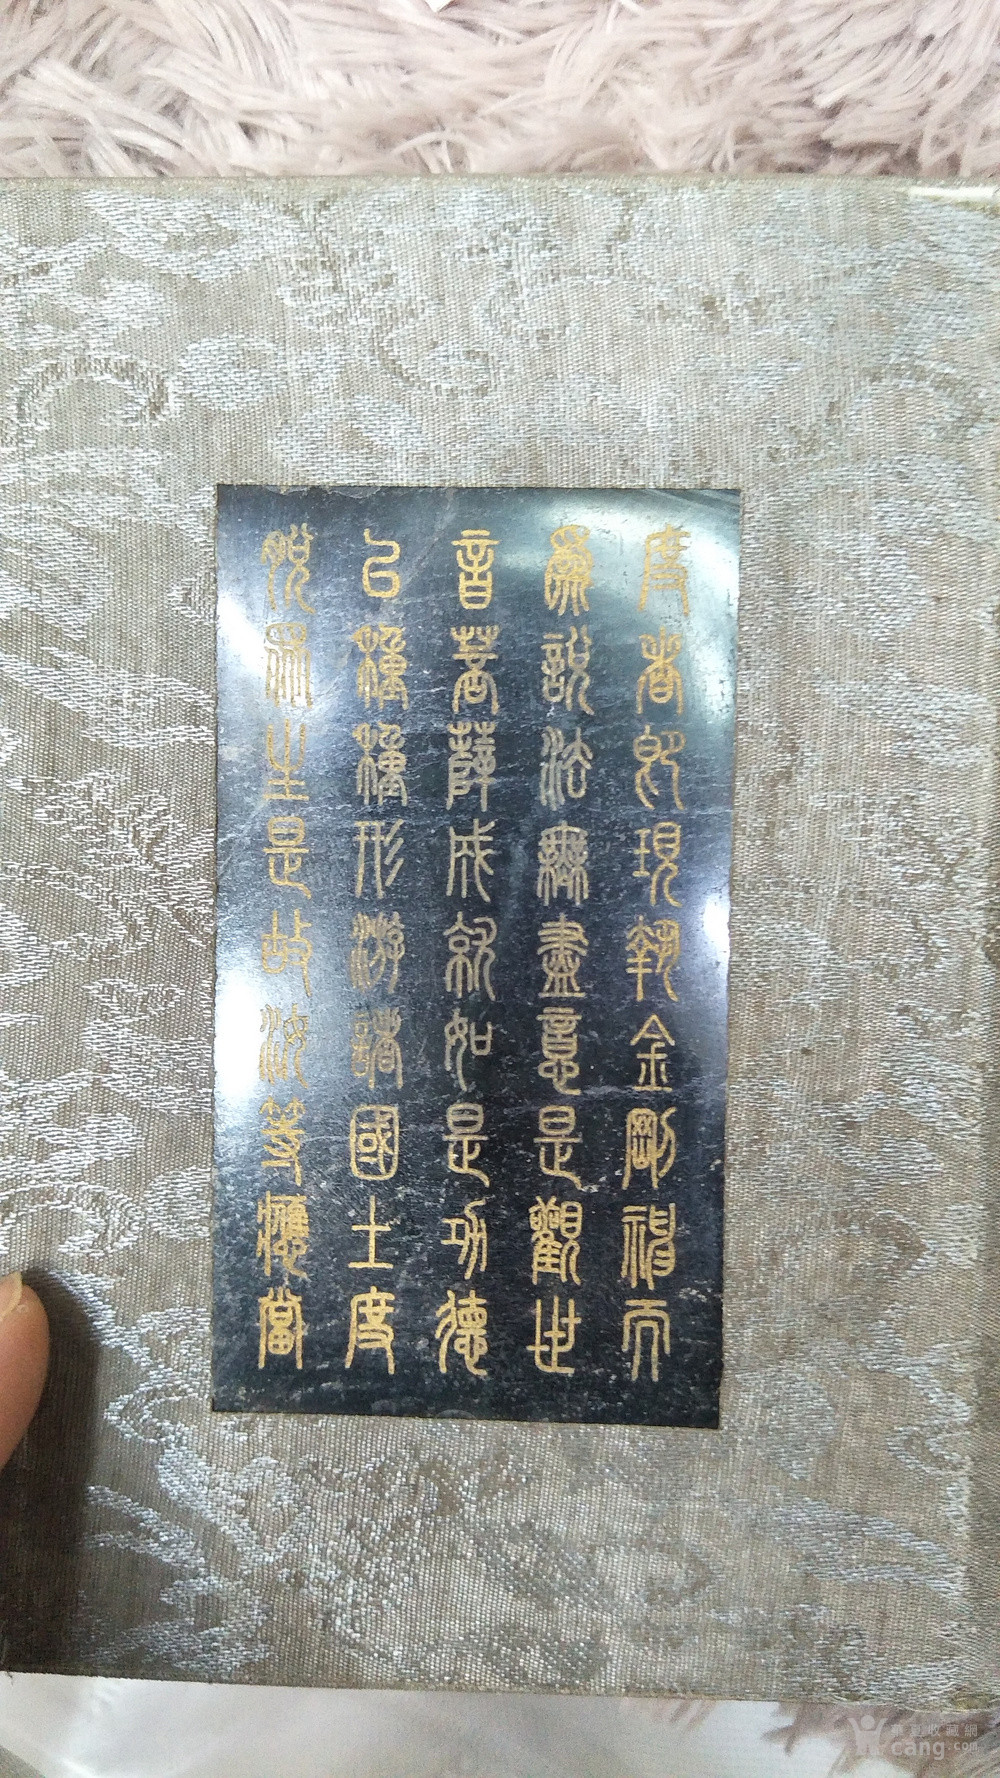 度者即現執金剛神而
為說法無盡意是觀世
音菩薩成就如是功德
以種種形游諸國土度
脫眾生是故汝等應當
華夏收藏網
cang.com